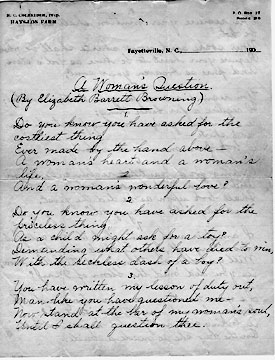 HAYSLOPE FARM
Fayetteville, N. C., 190
A Woman's Question
(By Elizabeth Barrett Browning)
Do you know you have asked for the
costliest thing
Ever made by the hand above—
A woman's heart and a woman's
life,
And a woman's wonderful love?
2
Do you know you have asked for the
priceless thing
As a child might ask for a toy?
Demanding what others have died to win,
With the reckless dash of a boy?
3.
You have written my lesson of duty out,
Man-like you have questioned me—
Now stand at the bar of my woman's soul,
Until I shall question thee.